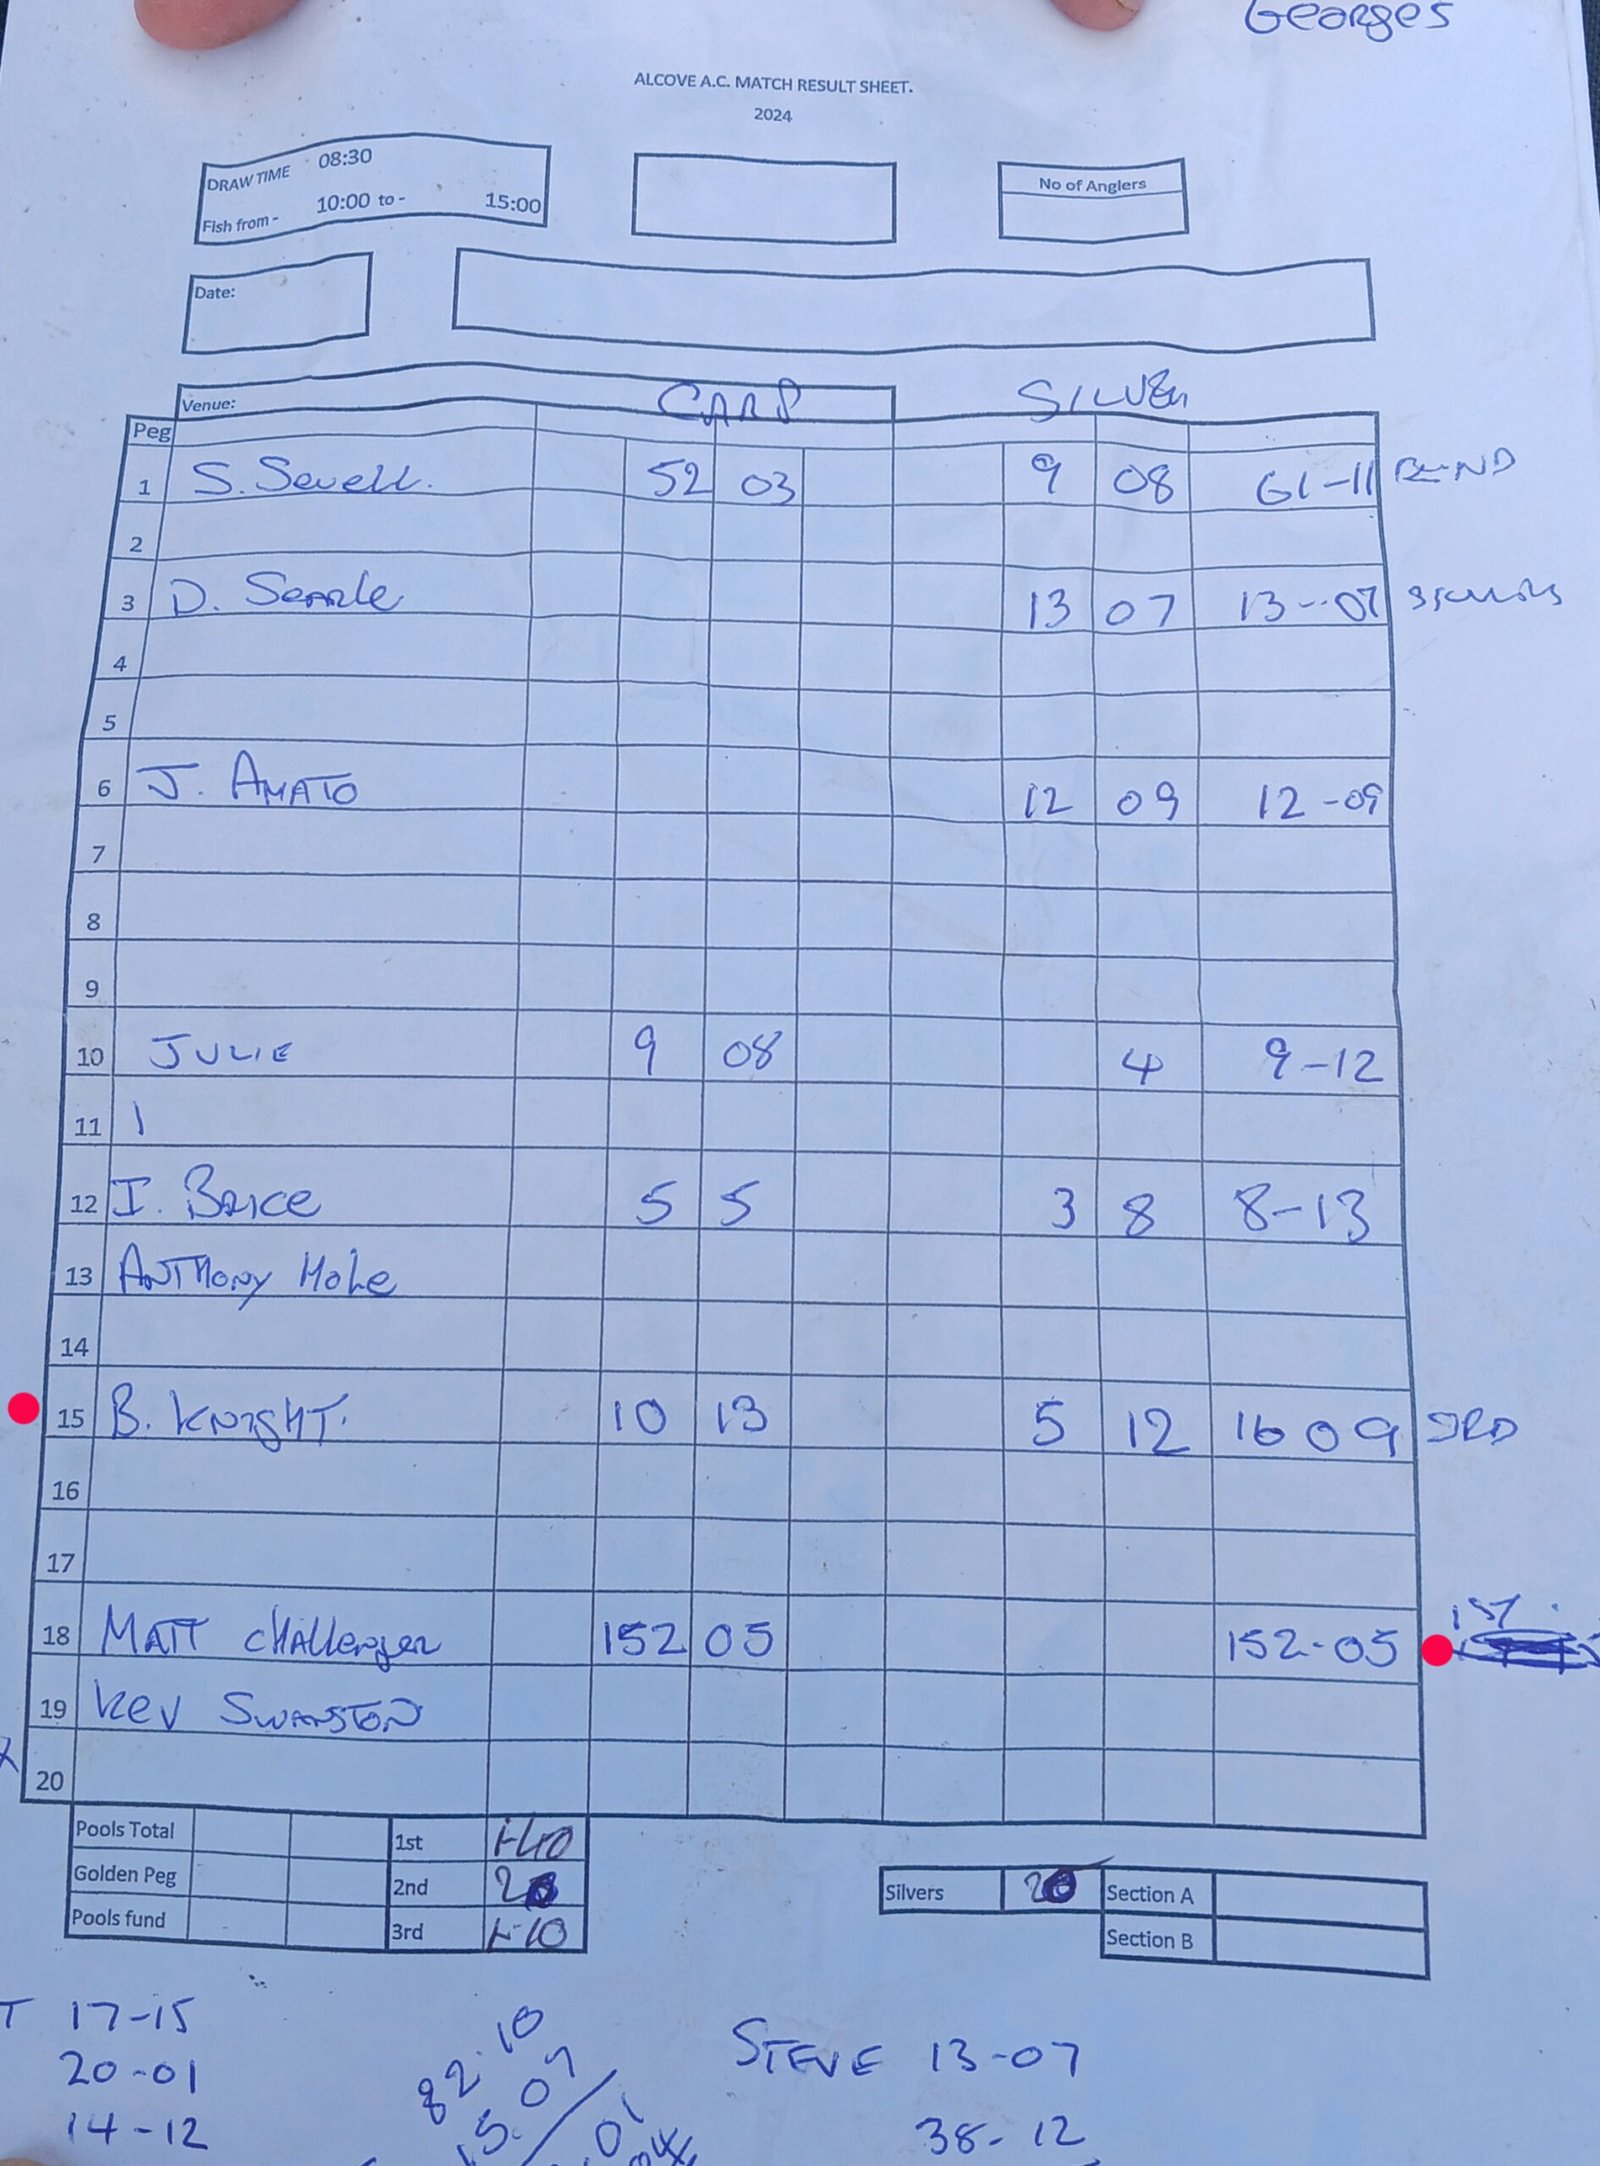 Georges
ALCOVE A.C. MATCH RESULT SHEET.
2024
DRAW TIME 08:30
Fish from - 10:00 to - 15:00
No of Anglers
Date:
Venue: CARP SILVER
Peg
1 S. Sewell. 52 03 9 08 61-11
2
3 D. Searle 13 07 13--07
4
5
6 J. AMATO 12 09 12-09
7
8
9
10 JULIE 9 08 4 9-12
11 1
12 I. BRICE 5 5 3 8 8-13
13 ANTHONY HOLE
14
15 B. KNIGHT. 10 13 5 12 16 09 3RD
16
17
18 MATT CHALLENGER 152 05 152-05 1ST
19 KEV SWANSTON
20
Pools Total 1st £40
Golden Peg 2nd 20
Pools fund 3rd £10
Silvers 20 Section A
Section B
T 17-15
20-01
14-12
82.10
15.07
.01
STEVE 13-07
38-12